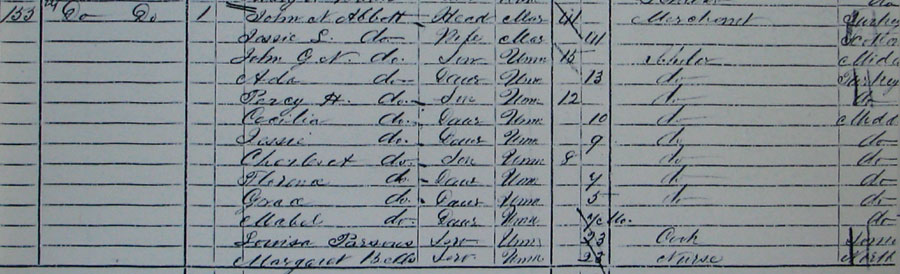 133 Do Do 1 John N Abbott Head Mar 41 Merchant
Jessie S. do Wife Mar 41
John G. N. do. Son Unm 15 Scholar Midd
Ada do Daur Unm 13 do
Percy H. do Son Unm 12 do do
Cecilia do. Daur Unm 10 do Midd
Jessie do. Daur Unm 9 do do
Charles A do. Son Unm 8 do do
Florence do. Daur Unm 7 do do
Grace do. Daur Unm 5 do do
Mabel do. Daur Unm 7 Mo. do
Louisa Parsons Serv Unm 23 Cook Some
Margaret Serv Unm Nurse North